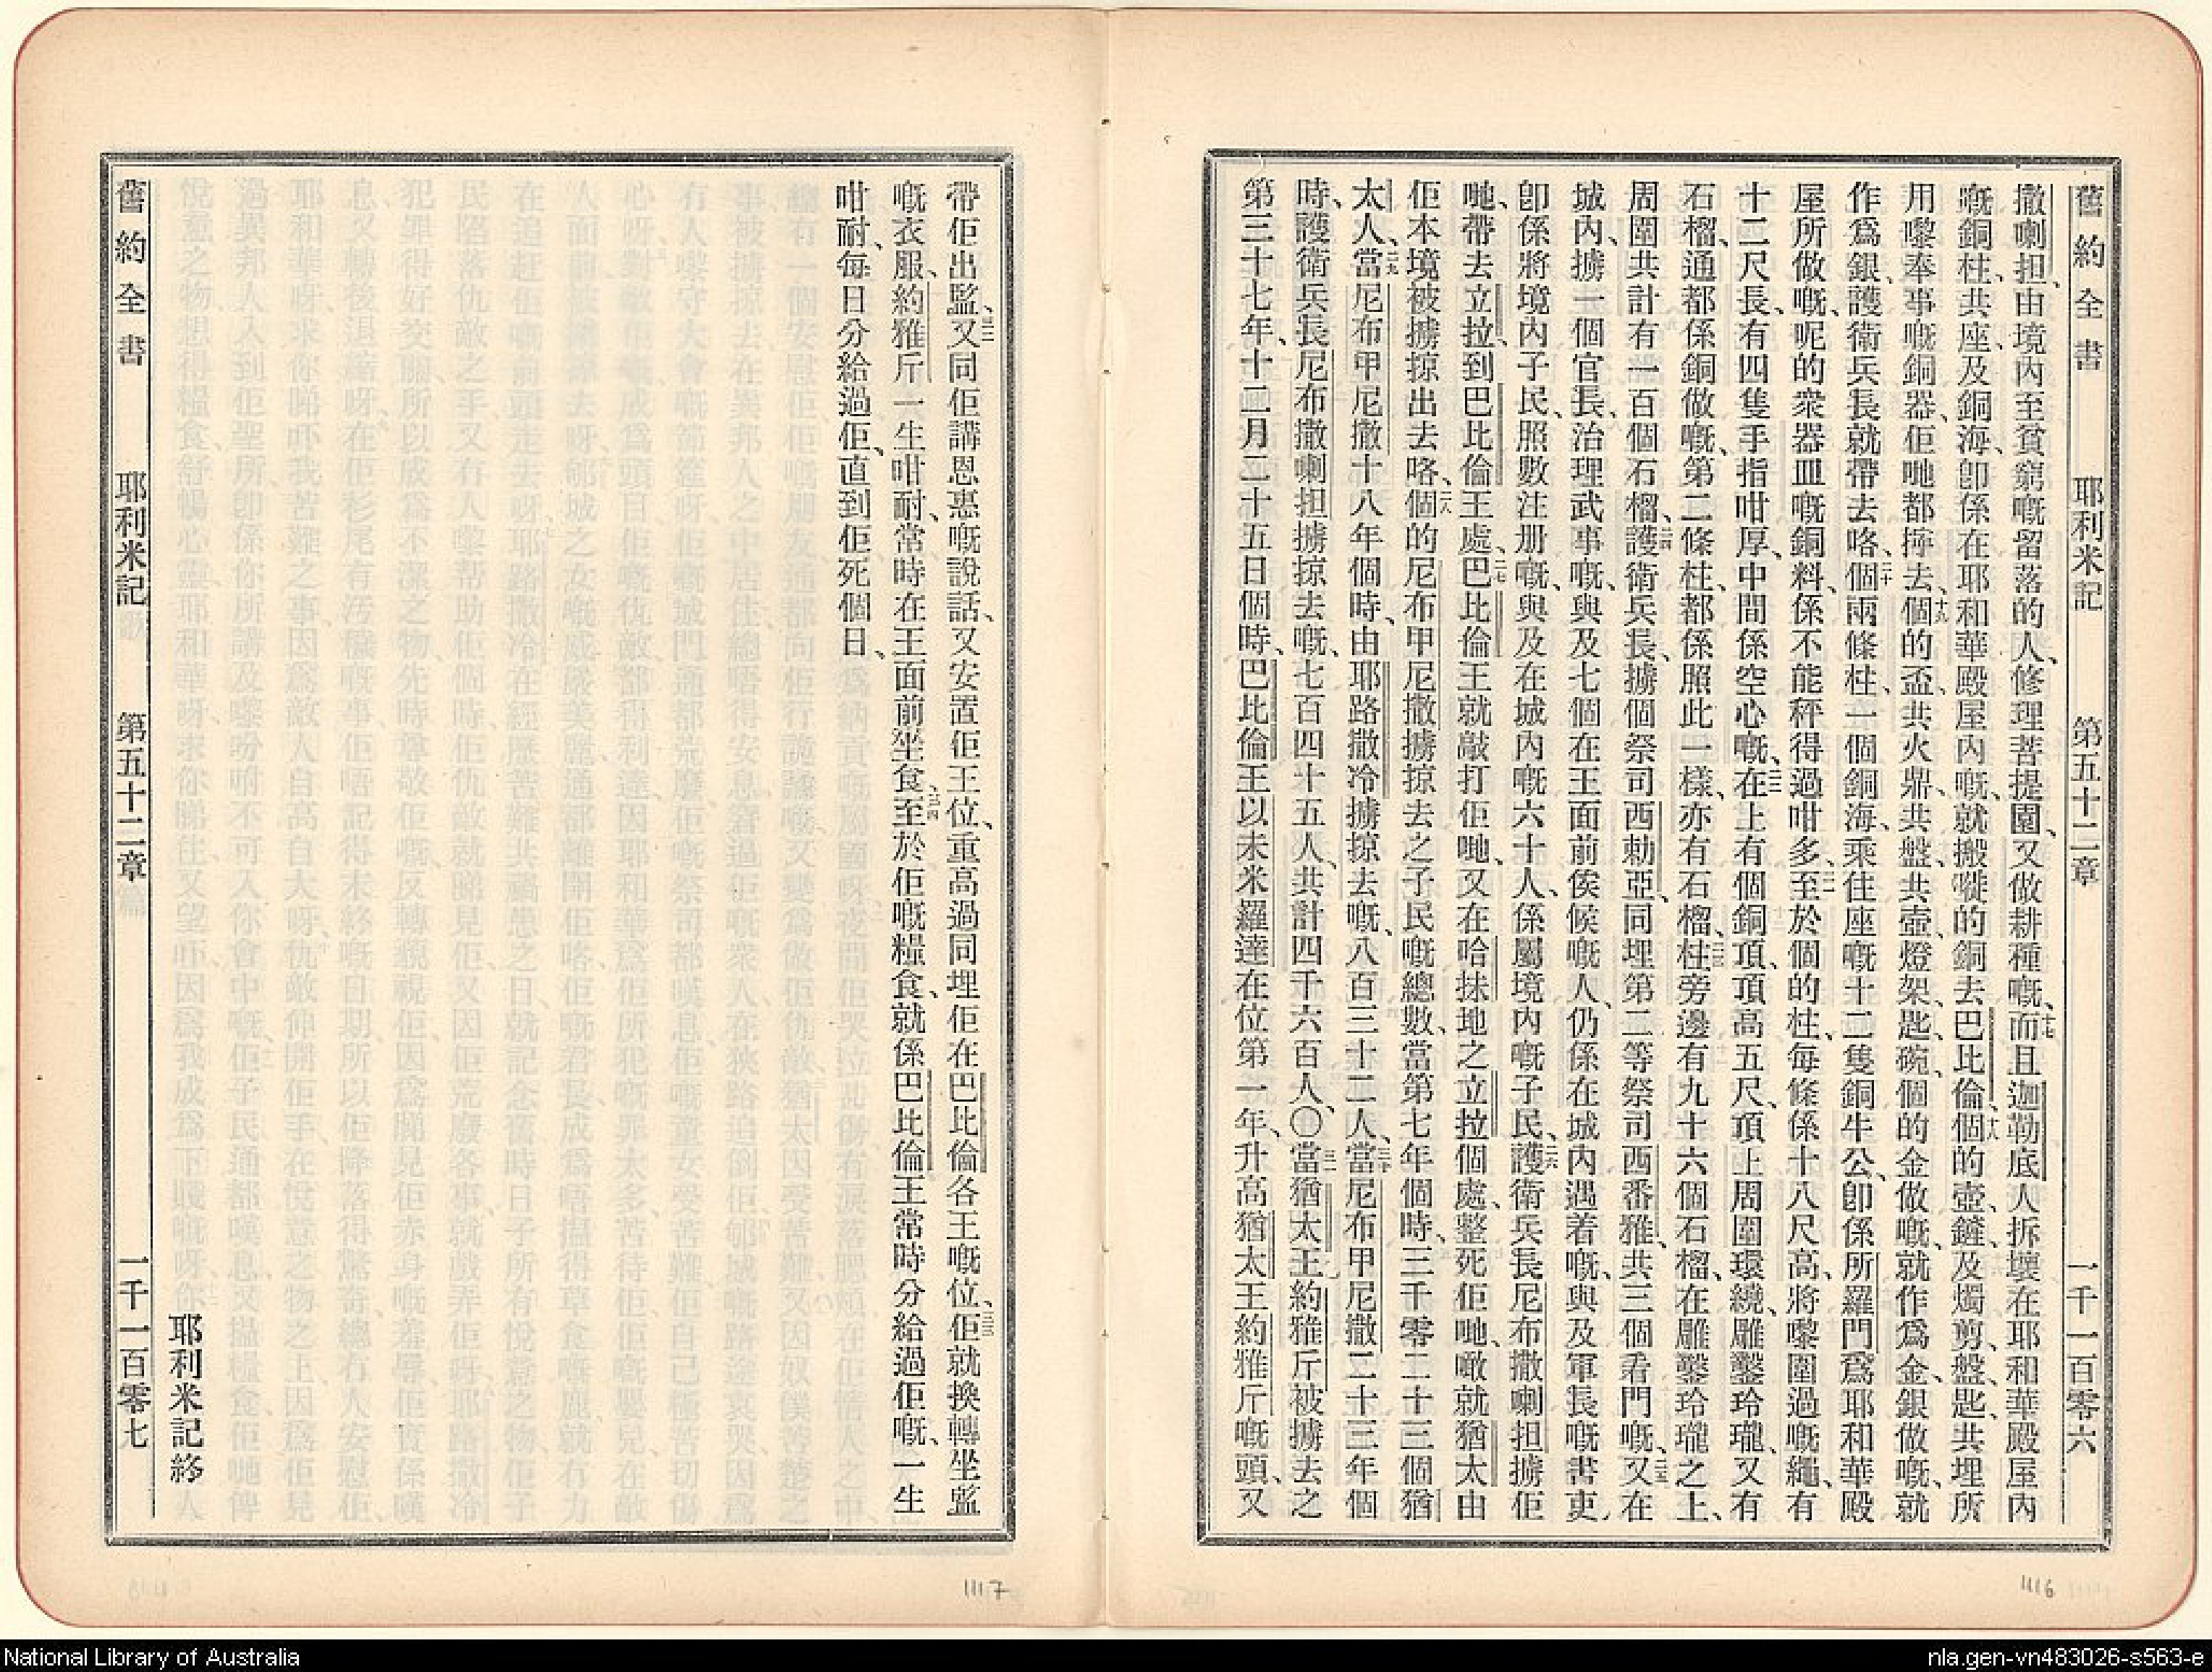 舊約全書 耶利米記 第五十二章 一千一百零六
撒喇担、由境內至貧窮嘅留落的人、修理菩提園、又做耕種嘅、十七而且迦勒底人拆壞在耶和華殿屋內
嘅銅柱、共座、及銅海、卽係在耶和華殿屋內嘅、就搬嚟的銅去巴比倫、十八個的壺、鏟、及燭剪、盤、匙、共埋所
用嚟奉事嘅銅器、佢哋都擰去、十九個的盃、共火鼎、共盤、共壺、燈架、匙、碗、個的金做嘅、就作爲金、銀做嘅、就
作爲銀、護衛兵長就帶去咯、二十個兩條柱、一個銅海、乘住座嘅十二隻銅牛公、卽係所羅門爲耶和華殿
屋所做嘅、呢的衆器皿嘅銅料、係不能秤得過咁多、二一至於個的柱、每條係十八尺高、將嚟圍過嘅繩、有
十二尺長、有四隻手指咁厚、中間係空心嘅、二二在上有個銅頂、頂高五尺、頂上周圍環繞、雕鑿玲瓏、又有
石榴、通都係銅做嘅、第二條柱、都係照此一樣、亦有石榴、二三柱旁邊有九十六個石榴、在雕鑿玲瓏之上、
周圍共計有一百個石榴、二四護衛兵長、擄個祭司西勅亞、同埋第二等祭司西番雅、共三個看門嘅、二五又在
城內、擄一個官長、治理武事嘅、與及七個在王面前俟候嘅人、仍係在城內遇着嘅、與及軍長嘅書吏、
卽係將境內子民、照數注册嘅、與及在城內嘅六十人、係屬境內嘅子民、二六護衛兵長尼布撒喇担擄佢
哋、帶去立拉、到巴比倫王處、二七巴比倫王就敲打佢哋、又在哈抹地之立拉個處、整死佢哋、噉就猶太由
佢本境被擄掠出去咯、二八個的尼布甲尼撒擄掠去之子民嘅總數、當第七年個時、三千零二十三個猶
太人、二九當尼布甲尼撒十八年個時、由耶路撒冷擄掠去嘅、八百三十二人、三十當尼布甲尼撒二十三年個
時、護衛兵長尼布撒喇担擄掠去嘅、七百四十五人、共計四千六百人、〇三一當猶太王約雅斤被擄去之
第三十七年、十二月二十五日個時、巴比倫王以未米羅達在位第一年、升高猶太王約雅斤嘅頭、又
帶佢出監、三二又同佢講恩惠嘅說話、又安置佢王位、重高過同埋佢在巴比倫各王嘅位、三三佢就換轉坐監
嘅衣服、約雅斤一生咁耐、常時在王面前坐食、三四至於佢嘅糧食、就係巴比倫王常時分給過佢嘅、一生
咁耐、每日分給過佢、直到佢死個日、
耶利米記終
舊約全書 耶利米記 第五十二章 一千一百零七
1117
1116
National Library of Australia
nla.gen-vn483026-s563-e